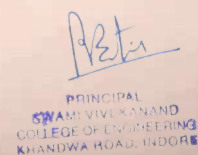 PRINCIPAL
SWAMI VIVEKANAND
COLLEGE OF ENGINEERING
KHANDWA ROAD, INDORE